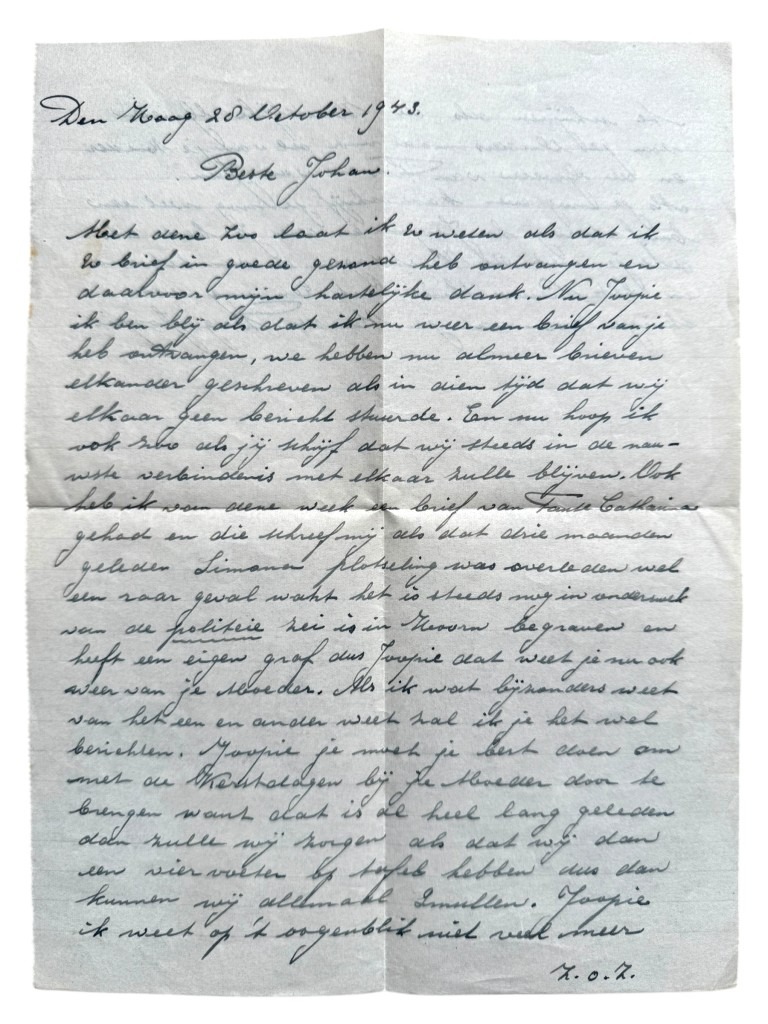 Den Haag 28 October 1943.
Beste Johan.
Met deze zoo laat ik U weten als dat ik
U brief in goede gezond heb ontvangen en
daarvoor mijn hartelijke dank. Nu Joopie
ik ben blij als dat ik nu weer een brief van je
heb ontvangen, we hebben nu almeer brieven
elkander geschreven als in dien tijd dat wij
elkaar geen bericht stuurde. En nu hoop ik
ook zoo als jij schijf dat wij steeds in de nau-
wste verbindenis met elkaar zulle blijven. Ook
heb ik van deze week een brief van Tante Catharina
gehad en die schreef mij als dat drie maanden
geleden Simona plotseling was overleden wel
een raar geval want het is steeds nog in onderzoek
van de politeie zei is in Hoorn begraven en
heeft een eigen graf dus Joopie dat weet je nu ook
weer van je Moeder. Als ik wat bijzonders weet
van het een en ander weet zal ik je het wel
berichten. Joopie je moet je best doen om
met de Kerstdagen bij je Moeder door te
brengen want dat is al heel lang geleden
dan zulle wij zorgen als dat wij dan
een vier voeter op tafel hebben dus dan
kunnen wij allemaal Smullen. Joopie
ik weet op 't oogenblik niet veel meer
Z.o.Z.